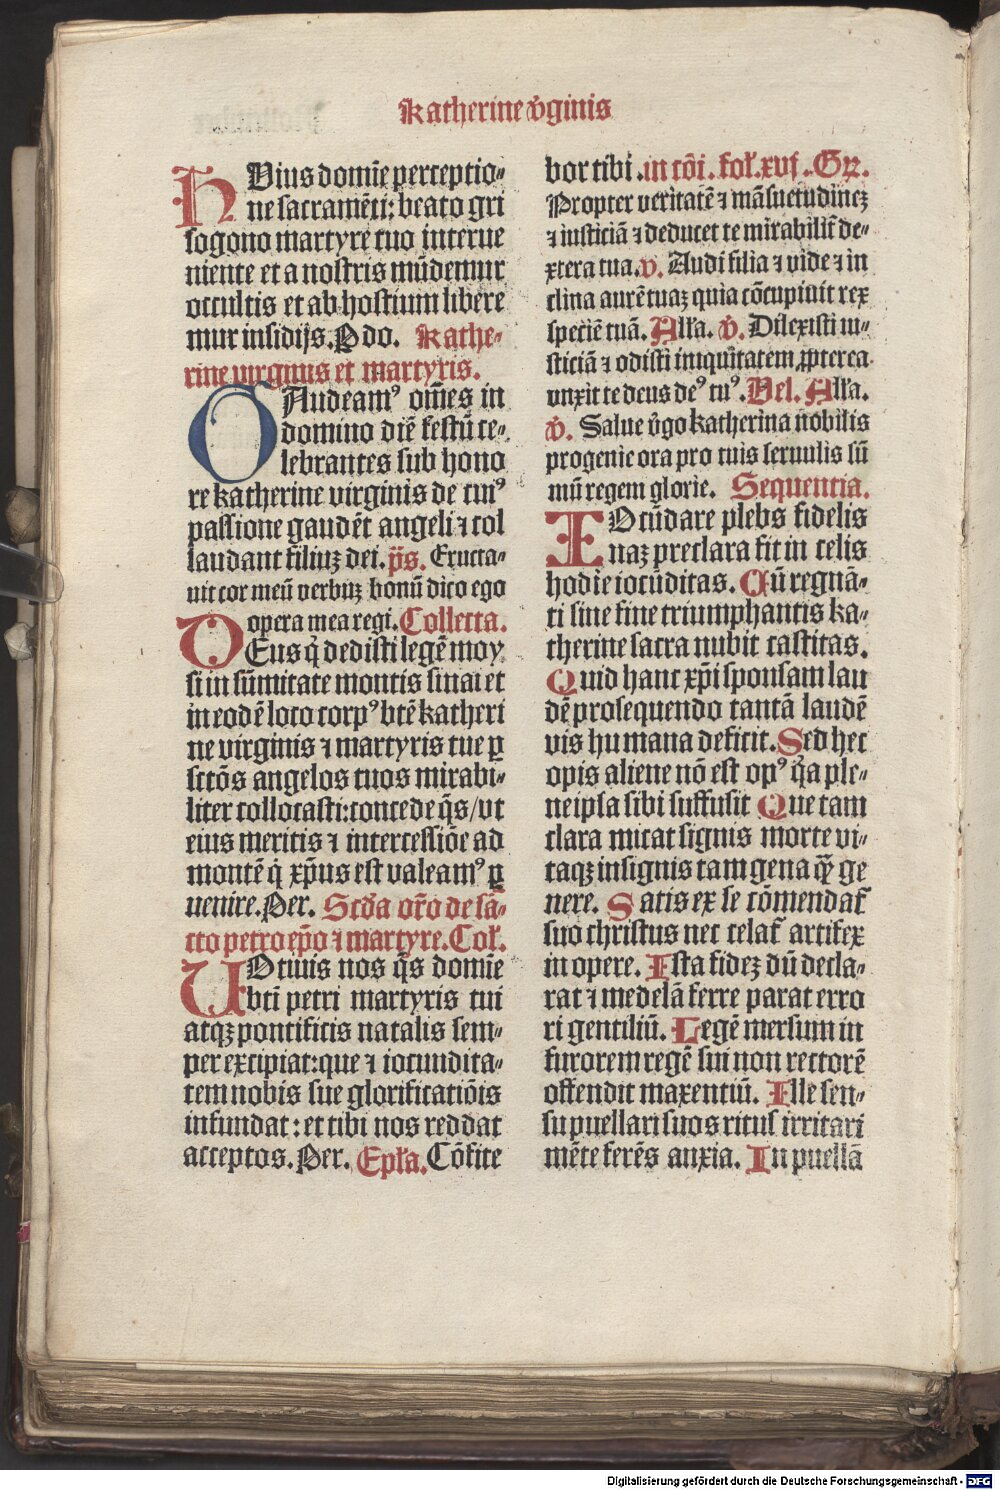 Katherine v̄ginis
HUius domīe perceptio⸗
ne sacramēti: beato gri
sogono martyre tuo interue
niente et a nostris mūdemur
occultis et ab hostium libere
mur insidijs. Pdo. Kathe⸗
rine virginis et martyris.
GAudeamꝰ om̄es in
domino diē festū ce⸗
lebrantes sub hono
re katherine virginis de cuiꝰ
passione gaudēt angeli ⁊ col
laudant filiuꝫ dei. p̄s. Eructa⸗
uit cor meū verbuꝫ bonū dico ego
opera mea regi. Collecta.
DEus q̇ dedisti legē moy
si in sūmitate montis sinai et
in eodē loco corpꝰ btē katheri
ne virginis ⁊ martyris tue ꝑ
sctōs angelos tuos mirabi⸗
liter collocasti: concede q̄s/ vt
eius meritis ⁊ intercessiōe ad
montē q̇ xp̄us est valeamꝰ ꝑ
uenire. Per. Scd̄a or̄o de sā⸗
cto petro ep̄o ⁊ martyre. Coł.
UOtiuis nos q̄s domīe
bt̄i petri martyris tui
atqꝫ pontificis natalis sem⸗
per excipiat: que ⁊ iocundita⸗
tem nobis sue glorificatiōis
infundat: et tibi nos reddat
acceptos. Per. Epła. Cōfite
bor tibi. in cōi. foł. xvj. Gꝛ.
Propter veritatē ⁊ māsuetudinēꝫ
⁊ iusticiā ⁊ deducet te mirabilit̄ de⸗
xtera tua. v̄. Audi filia ⁊ vide ⁊ in
clina aurē tuaꝫ quia cōcupiuit rex
speciē tuā. Ałła. v̄. Dilexisti iu⸗
sticiā ⁊ odisti iniquitatem ꝓpterea
vnxit te deus deꝰ tuꝰ. Vel. Ałła.
v̄. Salue v̄go katherina nobilis
progenie ora pro tuis seruulis sū
mū regem glorie. Sequentia.
IOcūdare plebs fidelis
naꝫ preclara fit in celis
hodie iocūditas. Cū regnā⸗
ti sine fine triumphantis ka⸗
therine sacra nubit castitas.
Quid hanc xp̄i sponsam lau
dē prosequendo tantā laudē
vis humana deficit. Sed hec
opis aliene nō est opꝰ q̄a ple⸗
ne ipsa sibi suffusit Que tam
clara micat signis morte vi⸗
taqꝫ insignis tam gena q̄ꝫ ge
nere. Satis ex se cōmendat̄
suo christus nec celat̄ artifex
in opere. Ista fideꝫ dū decla⸗
rat ⁊ medelā ferre parat erro
ri gentiliū. Legē mersum in
furorem regē sui non rectorē
offendit maxentiū. Ille sen⸗
su puellari suos ritus irritari
mēte ferēs anxia. In puellā
Digitalisierung gefördert durch die Deutsche Forschungsgemeinschaft - DFG